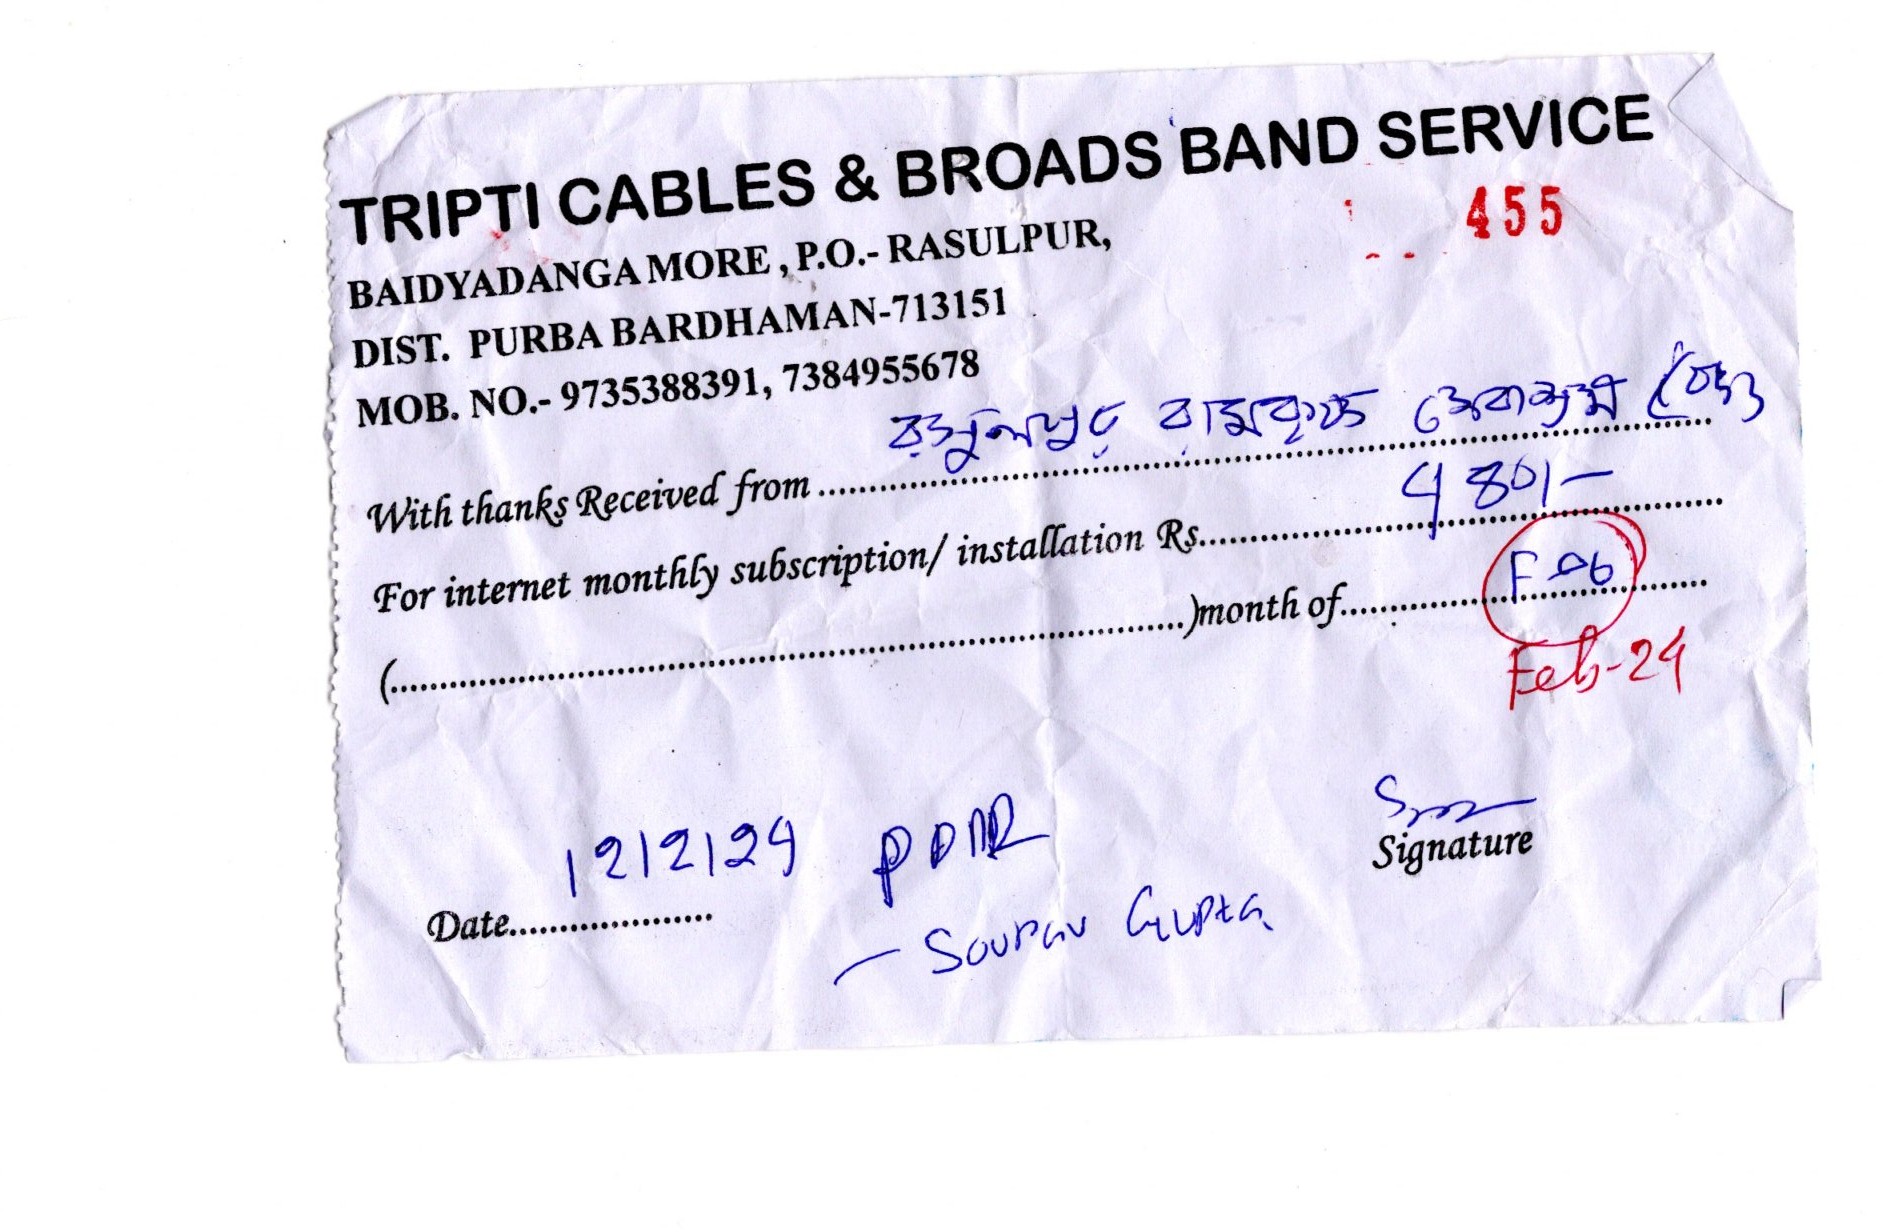 TRIPTI CABLES & BROADS BAND SERVICE
455
BAIDYADANGA MORE , P.O.- RASULPUR,
DIST. PURBA BARDHAMAN-713151
MOB. NO.- 9735388391, 7384955678
With thanks Received from রসুলপুর রামকৃষ্ণ সেবাশ্রম
For internet monthly subscription/ installation Rs. 4801-
(........)month of Feb
Feb-24
Signature
Date 12/2/24
Sourav Gupta